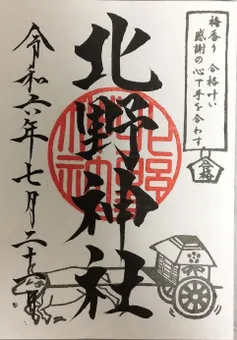 梅香り 合格叶い
感謝の心で手を合わす
北野神社
令和六年七月二十三日